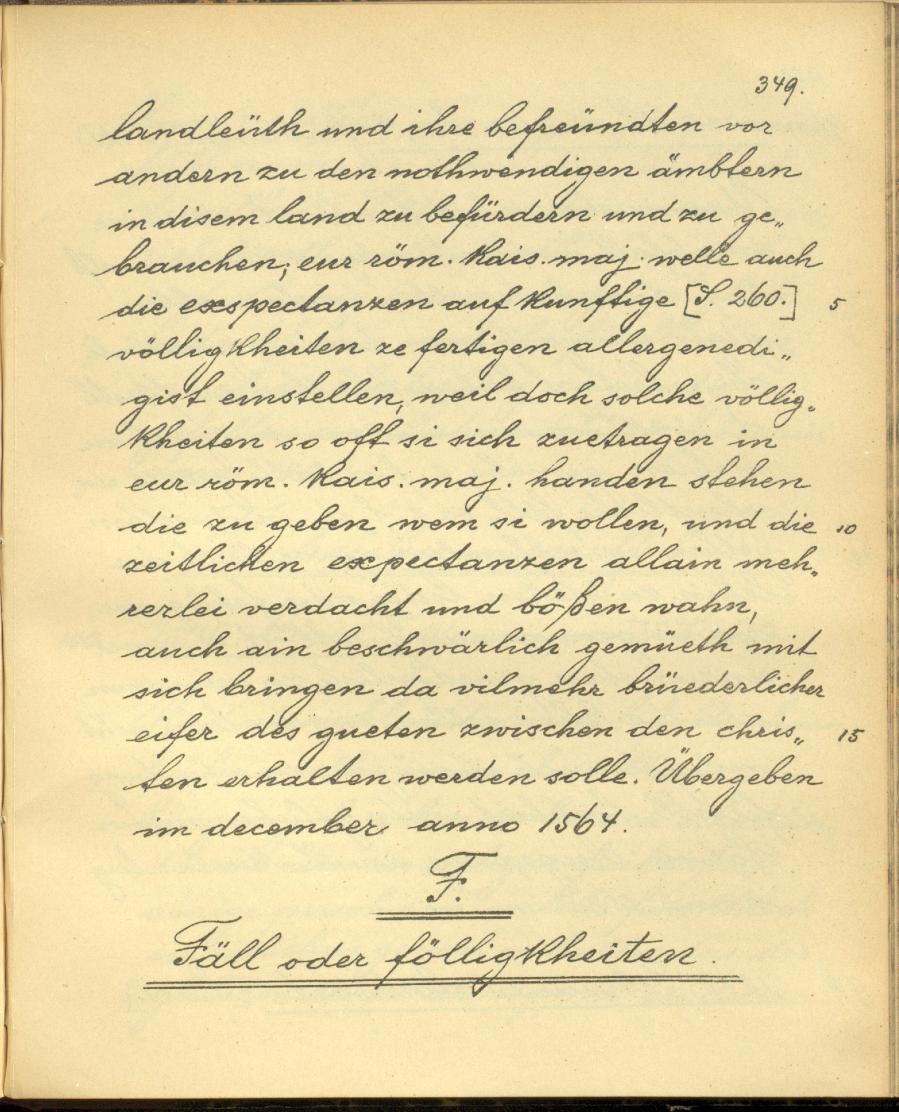 349.
landleüth und ihre befreündten vor
andern zu den nothwendigen ämbtern
in disem land zu befürdern und zu ge„
brauchen; eur röm. kais. maj. welle auch
die exspectanzen auf kunftige [S. 260.] 5
völligkheiten ze fertigen allergenedi„
gist einstellen, weil doch solche völlig„
kheiten so oft si sich zuetragen in
eur röm. kais. maj. handen stehen
die zu geben wem si wollen, und die 10
zeitlichen expectanzen allain meh„
rerlei verdacht und bößen wahn,
auch ain beschwärlich gemüeth mit
sich bringen da vilmehr brüederlicher
eifer des gueten zwischen den chris„ 15
ten erhalten werden solle. Übergeben
im december anno 1564.
F.
Fäll oder fölligkheiten.